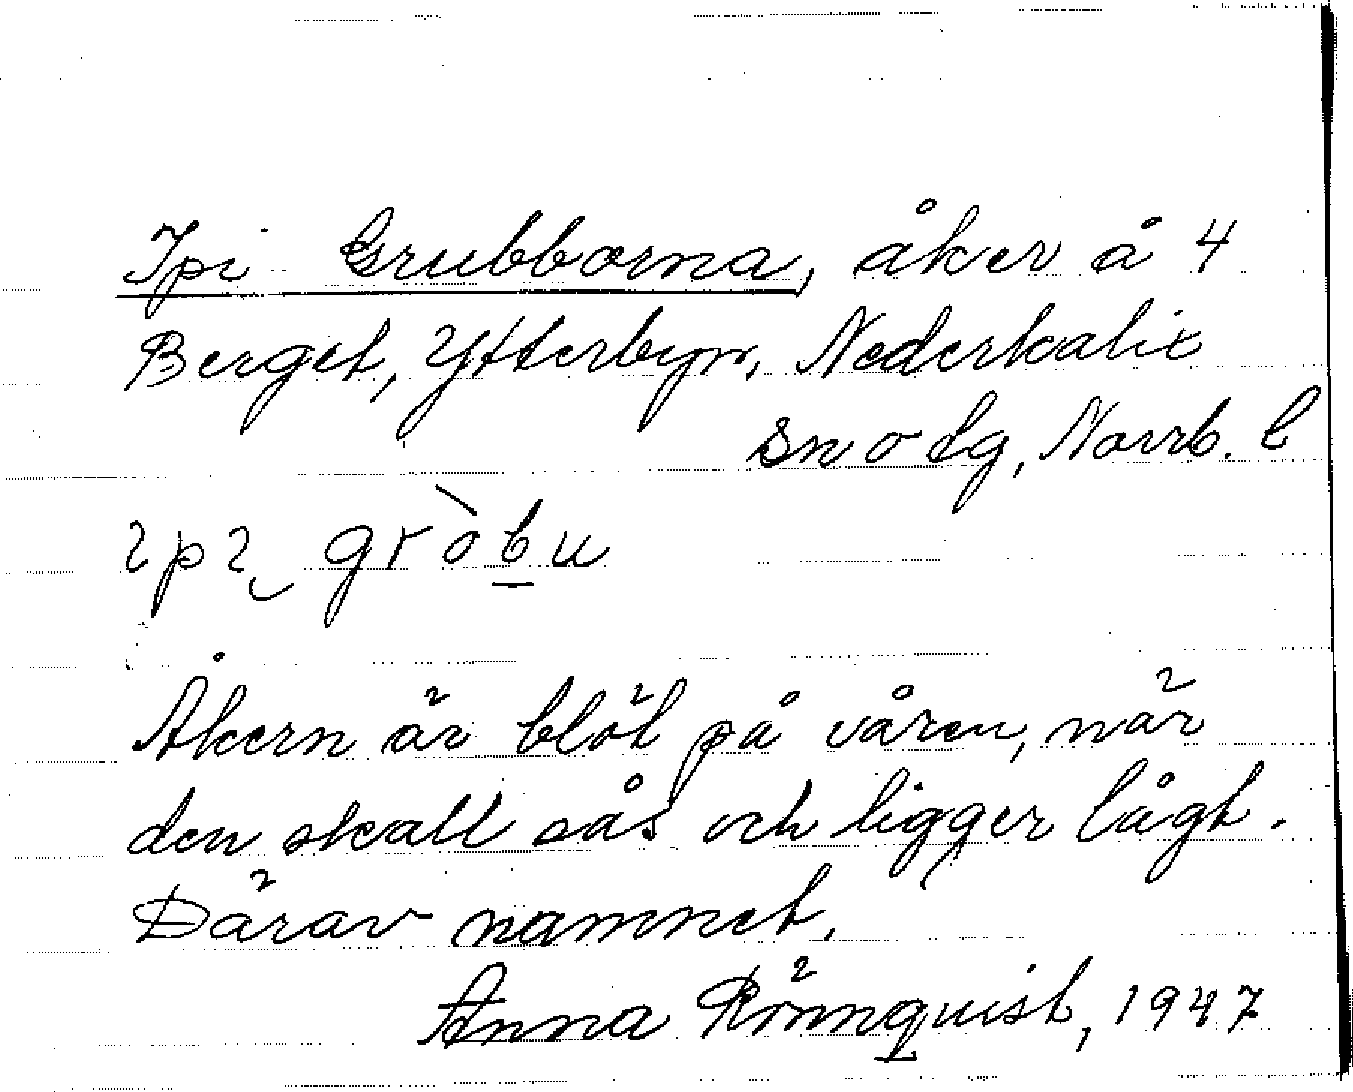 Ipi Grubborna, åker å 4
Berget, Ytterbyn, Nederkalix
sn o tg, Norrb. l
ipi gròbu
Åkern är blöt på våren, när
den skall sås och ligger lågt.
Därav namnet.
Anna Rönnquist, 1947